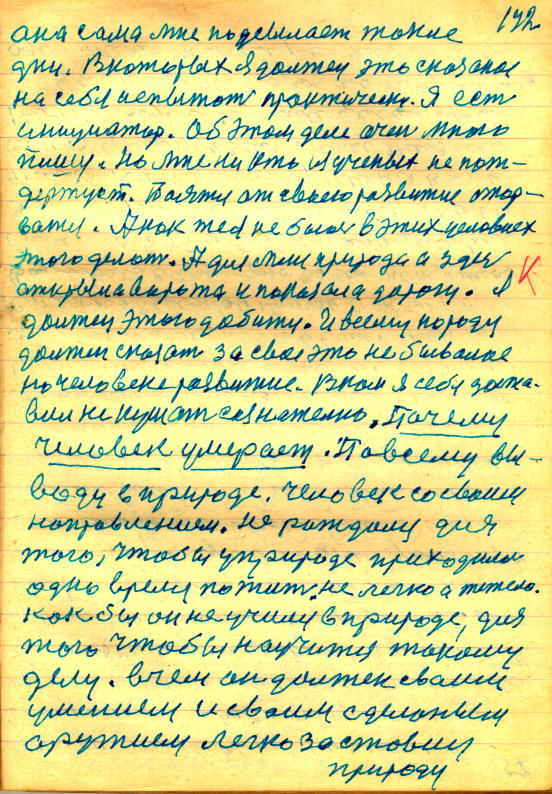 172
она сама мне подсылает такие
дни. В которых я должен это сказаное
на себя испытат практически. Я ест
инициатор. Об этом деле очен много
пишу. Но мне ни кто из ученых не пот-
держует. Боятся от своего развитие отор-
ватся. А пока тея не было в этих человеках
этого делат. А для меня природа и здес
открыла варота и показала дорогу. Я
К
должен этого добится. И всему народу
должен сказат за свое это не бывалое
на человеке развитие. В ком я себя заста-
вил не кушат сознателно, Почему
человек умерает. По всему вы-
воду в природе. Человек со своим
направлением. Не рождали для
того, чтобы у природе приходило
одно время пожит, не легко а тежело.
Как бы он не учили в природе, для
того чтобы научится такому
делу. В чем он должен своим
умением и своим сделаным
оружием легко заставит
природу